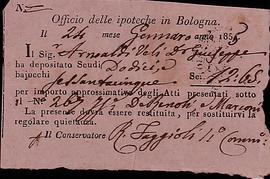 N.
Officio delle ipoteche in Bologna.
Il 24 mese Gennaro anno 185
Il Sig. Arnoaldi Veli Dr Giuseppe
ha depositato Scudi Dodici e
bajocchi sessantacinque Sc. 12.65
per importo approssimativo degli Atti presentati sotto
il N.° 267
La presente dovrà essere restituita, per sostituirvi la
regolare quietanza.
Il Conservatore